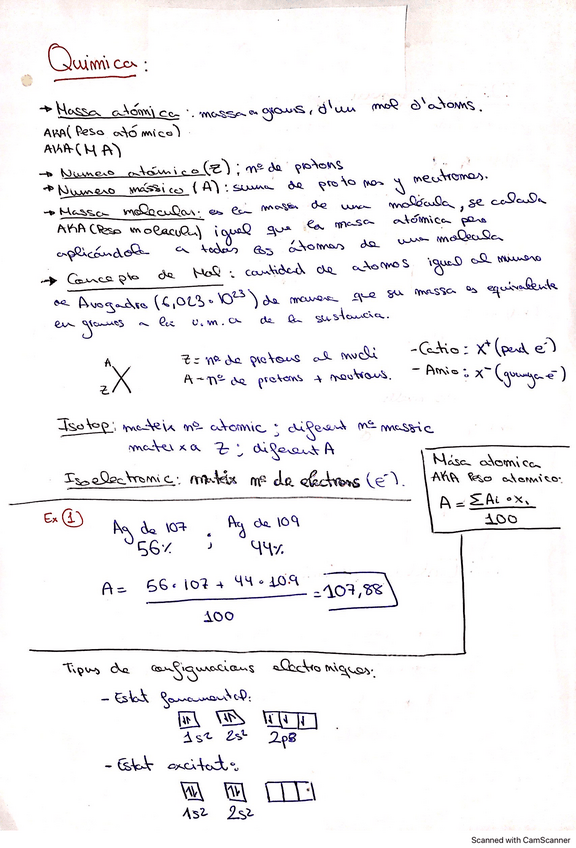 Química:
→ Massa atómica: massa a grams, d'un mol d'atoms.
AKA (Peso atómico)
AKA (MA)
→ Numero atómico (Z): nº de protons
→ Numero mássico (A): suma de protones y neutrones.
→ Massa molecular: es la masa de una molécula, se calcula
AKA (Peso molecular) igual que la masa atómica pero
aplicándola a todos los átomos de una molecula
→ Concepto de Mol: cantidad de atomos igual al numero
de Avogadro (6,023 · 10²³) de manera que su massa es equivalente
en gramos a la u.m.a de la sustancia.
A
X
Z
Z = nº de protons al nucli
A = nº de protons + neutrons.
- Catio: X⁺ (perd e⁻)
- Anio: X⁻ (guanya e⁻)
Isotop: mateix nº atomic; diferent nº massic
mateixa Z; diferent A
Isoelectronic: mateix nº de electrons (e⁻).
Mása atomica
AKA Peso atomico:
A = ΣAi · Xi
100
Ex ①
Ag de 107 ; Ag de 109
56% 44%
A = 56 · 107 + 44 · 109 = 107,88
100
Tipus de configuracions electroniques:
- Estat fonamental:
1s² 2s² 2p
- Estat excitat:
1s² 2s²
Scanned with CamScanner